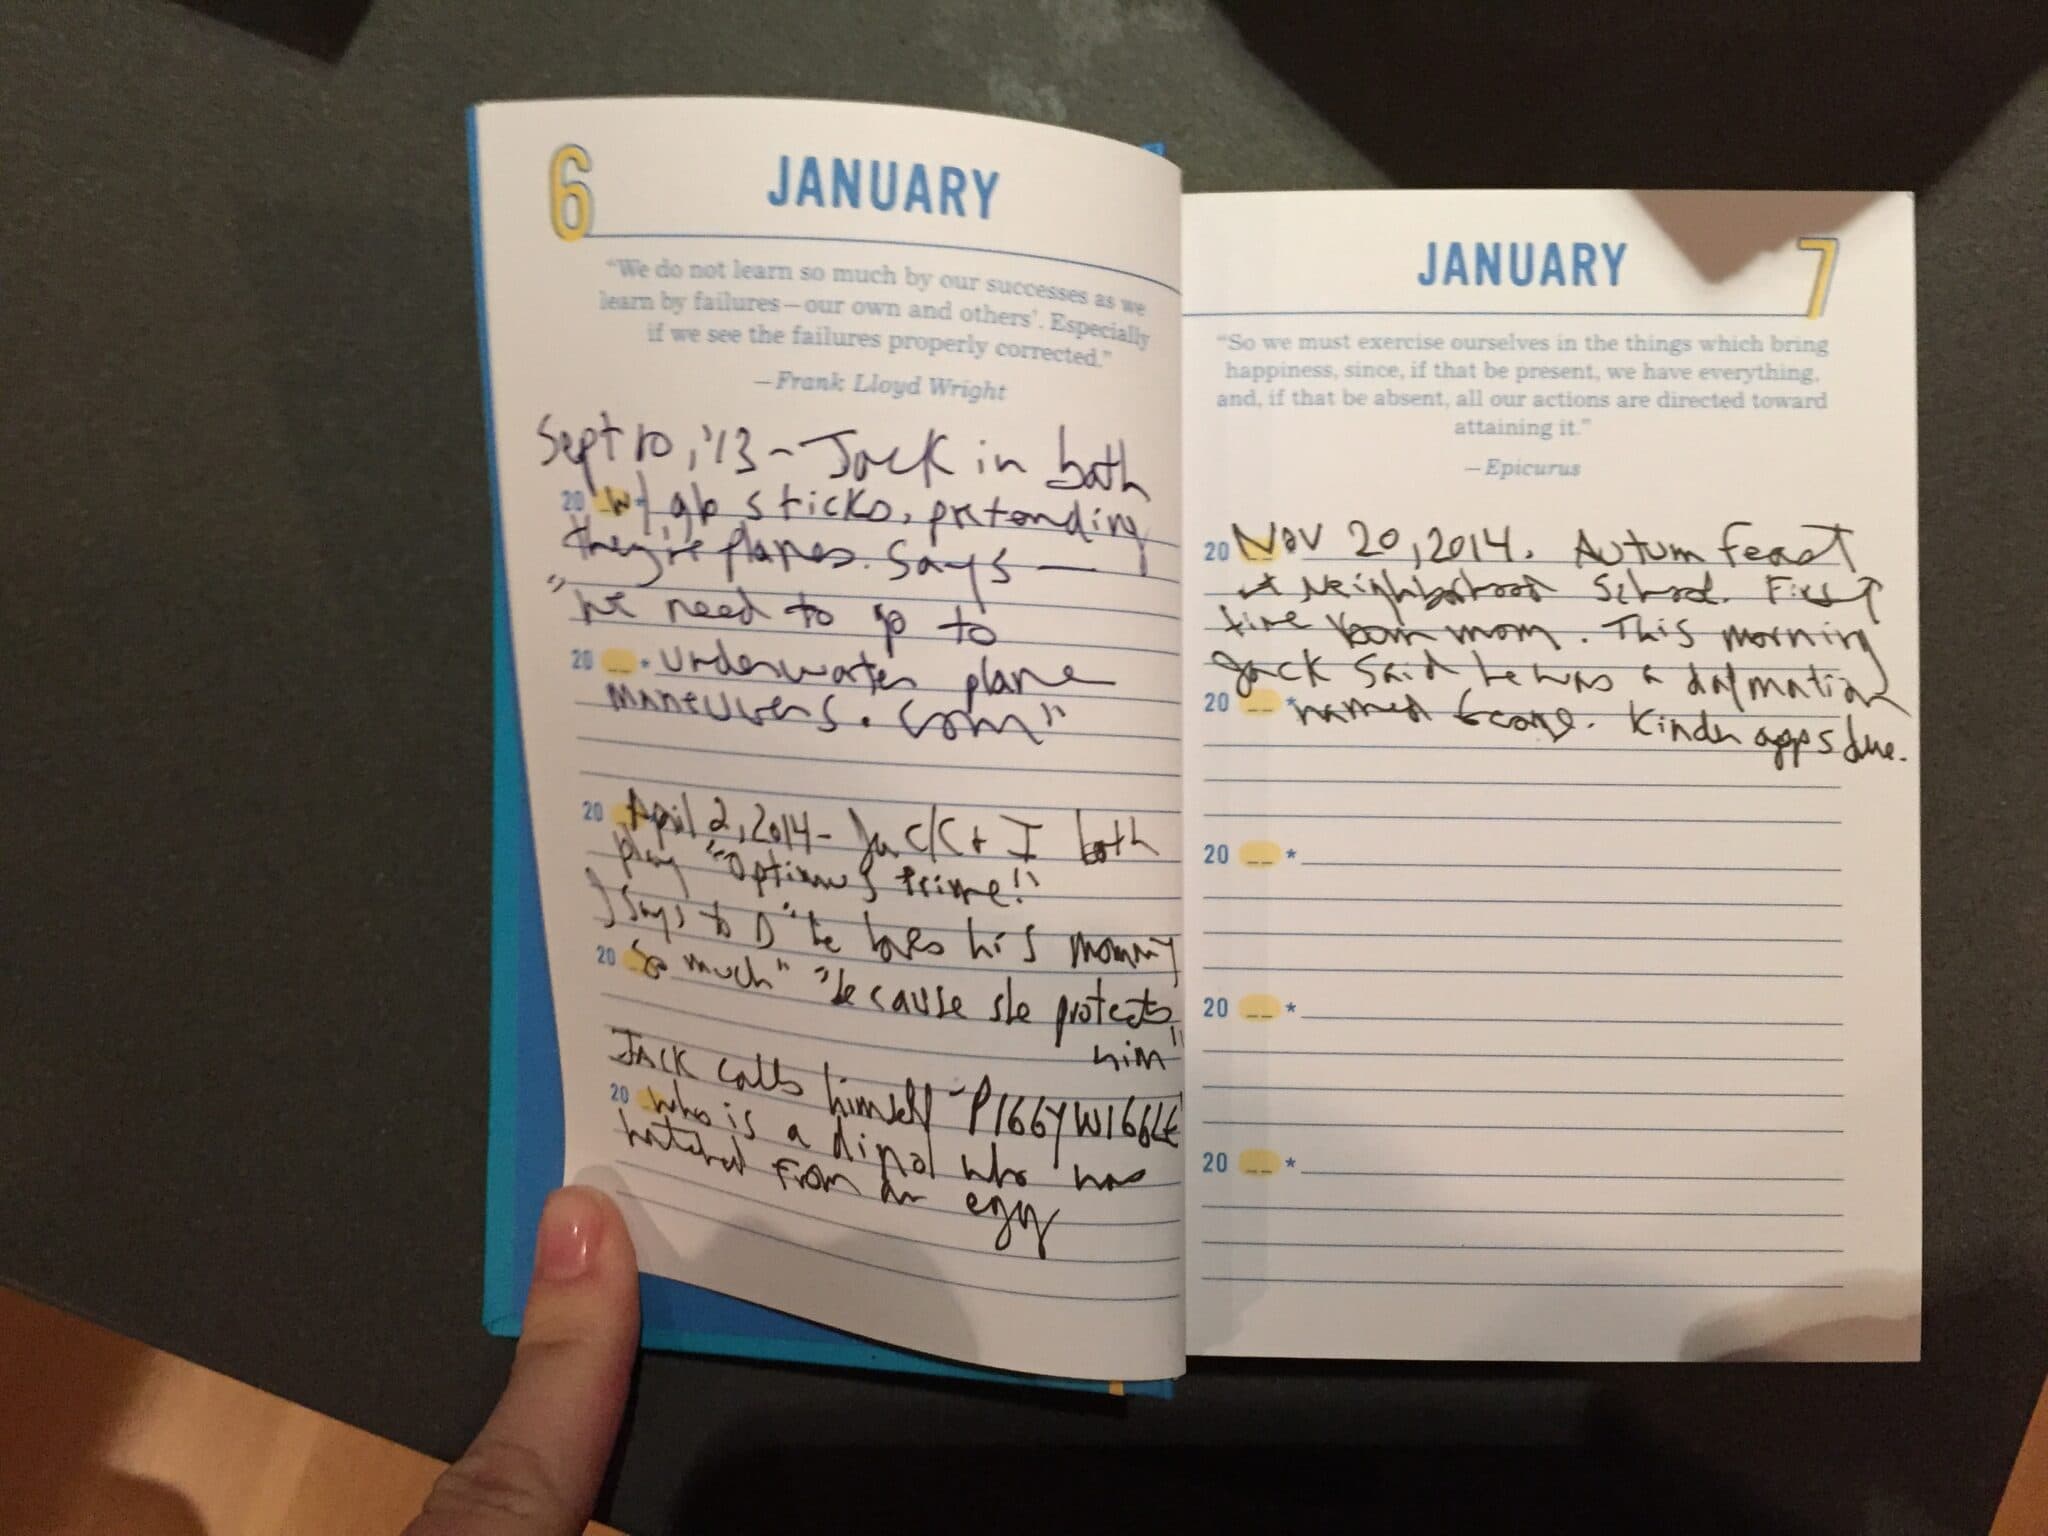 6
JANUARY
"We do not learn so much by our successes as we
learn by failures—our own and others'. Especially
if we see the failures properly corrected."
—Frank Lloyd Wright
Sept 10, '13 - Jack in bath
20 w/ glo sticks, pretending
they're planes. Says —
"We need to go to
20 __ * underwater plane
maneuvers.com"
20 April 2, 2014 - Jack + I both
play "Optimus Prime!"
J says to D "he loves his mommy
20 so much" "because she protects
him"
JACK calls himself "PIGGYWIGGLE
20 who is a dino who was
hatched from an egg
JANUARY
7
"So we must exercise ourselves in the things which bring
happiness, since, if that be present, we have everything,
and, if that be absent, all our actions are directed toward
attaining it."
—Epicurus
20 Nov 20, 2014. Autum feast
at Neighborhood School. First
time room mom. This morning
Jack said he was a dalmatian
20 __ * named. Kinder apps due.
20 __ *
20 __ *
20 __ *